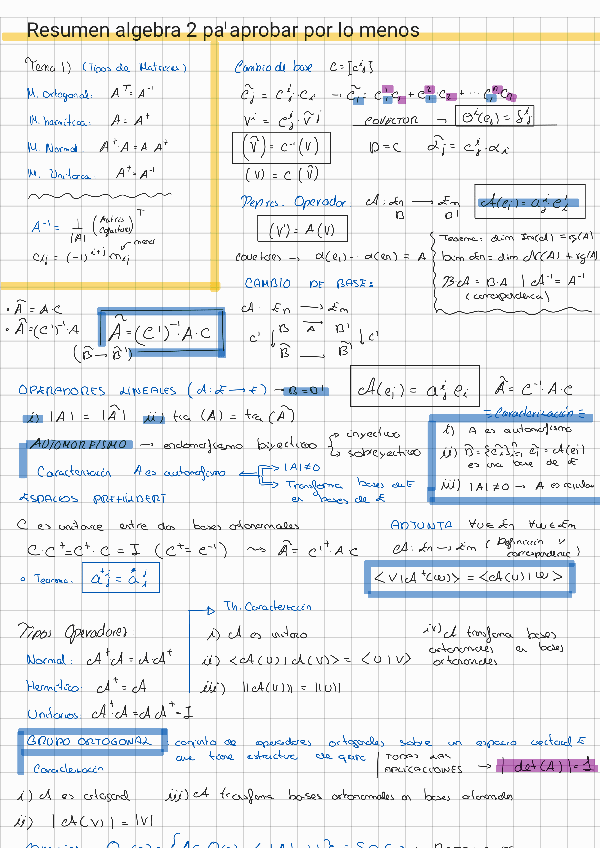 Resumen algebra 2 pa'aprobar por lo menos
Tema 1) (Tipos de Matrices)
M. Ortogonal: Aᵀ = A⁻¹
M. hermítica: A = A⁺
M. Normal A⁺·A = A·A⁺
M. Unitaria A⁺ = A⁻¹
A⁻¹ = 1/|A| (Matriz cofactores)ᵀ
Cij = (-1)^(i+j) mij → menor
Cambio de base C = [cⁱⱼ]
(Ṽ) = C⁻¹(V)
(V) = C(Ṽ)
COVECTOR → θʲ(eᵢ) = δʲᵢ
D = C α̃ⱼ = cⁱⱼ·αᵢ
Repres. Operador. A: En → Em
B B'
A(eᵢ) = aʲᵢ e'ⱼ
(V') = A(V)
Teorema: dim Im(A) = rg(A)
dim En = dim N(A) + rg(A)
BA = B·A | A⁻¹ = A⁻¹
(correspondencia)
CAMBIO DE BASE:
A: En → Em
C' B A B' C'
B̃ → B̃'
• Ã = A·C
• Ã = (C')⁻¹·A
Ã = (C')⁻¹·A·C
(B̃ → B̃')
OPERADORES LINEALES (A: E → E) → B = B'
A(eᵢ) = aʲᵢ eⱼ Ã = C⁻¹·A·C
i) |A| = |Ã| ii) tra (A) = tra (Ã)
AUTOMORFISMO → endomorfismo biyectivo
inyectivo
sobreyectivo
Caracterización A es automorfismo
|A| ≠ 0
Transforma bases de E
en bases de E
= Caracterización =
i) A es automorfismo
ii) B̃ = {ẽᵢ}ⁿᵢ₌₁ ẽᵢ = A(eᵢ)
es una base de E
iii) |A| ≠ 0 → A es regular
ESPACIOS PREHILBERT
C es unitaria entre dos bases ortonormales
C·C⁺ = C⁺·C = I (C⁺ = C⁻¹) ⇝ Ã = C'⁺·A·C
• Teorema:
ADJUNTA ∀u ∈ En ∀w ∈ Em
A: En → Em (Definición y
correspondencia)
<V|A⁺(w)> = <A(v)|w>
Th. Caracterización
Tipos Operadores
Normal: A⁺A = A·A⁺
Hermítico: A⁺ = A
Unitarios A⁺·A = A·A⁺ = I
i) A es unitario
ii) <A(u)|A(v)> = <u|v>
iii) ||A(u)|| = ||u||
iv) A transforma bases
ortonormales en bases
ortonormales
GRUPO ORTOGONAL: conjunto de operadores ortogonales sobre un espacio vectorial E
que tiene estructura de grupo
Caracterización
TODAS LAS
APLICACIONES → |det(A)| = 1
i) A es ortogonal iii) A transforma bases ortonormales en bases ortonormales
ii) |A(V)| = |V|